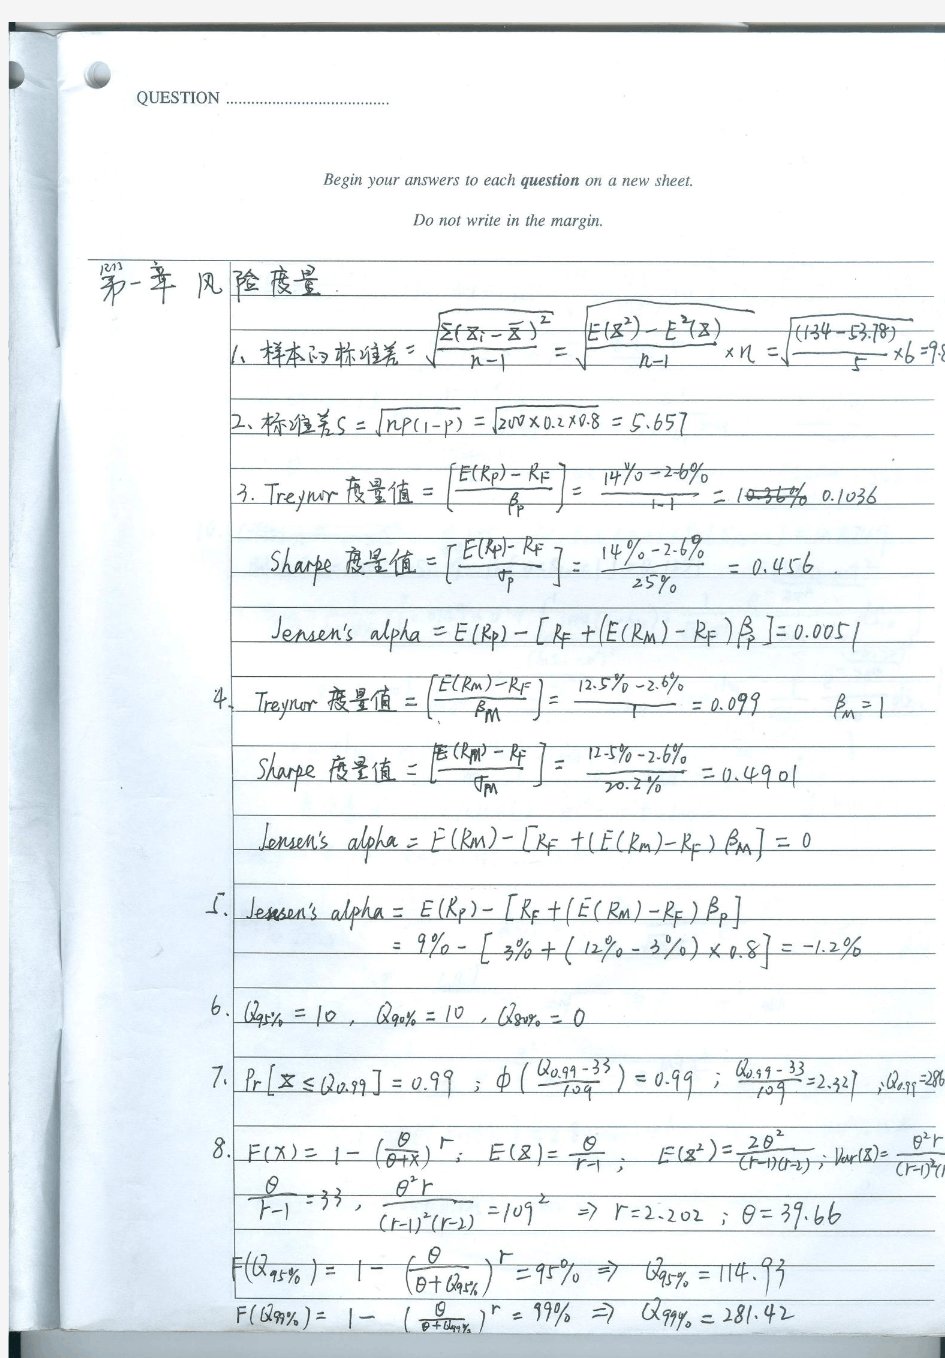 QUESTION ........................................
Begin your answers to each question on a new sheet.
Do not write in the margin.
第一章 风险度量
1、样本的标准差 = √(Σ(Xi - X̄)² / (n-1)) = √((E(X²) - E²(X)) / (n-1) × n) = √((134 - 53.78) / 5 × 6) = 9.8
2、标准差 S = √(np(1-p)) = √(200×0.2×0.8) = 5.657
3. Treynor 度量值 = [(E(Rp) - RF) / βp] = (14% - 2.6%) / 1.1 = 0.1036
Sharpe 度量值 = [(E(Rp) - RF) / σp] = (14% - 2.6%) / 25% = 0.456
Jensen's alpha = E(Rp) - [RF + (E(RM) - RF) βp] = 0.0051
4. Treynor 度量值 = [(E(Rm) - RF) / βM] = (12.5% - 2.6%) / 1 = 0.099 βM = 1
Sharpe 度量值 = [(E(RM) - RF) / σM] = (12.5% - 2.6%) / 20.2% = 0.4901
Jensen's alpha = E(RM) - [RF + (E(Rm) - RF) βM] = 0
5. Jensen's alpha = E(Rp) - [RF + (E(RM) - RF) βp]
= 9% - [3% + (12% - 3%) × 0.8] = -1.2%
6. Q95% = 10 , Q90% = 10 , Q80% = 0
7. Pr[X ≤ Q0.99] = 0.99 ; Φ((Q0.99 - 33) / 109) = 0.99 ; (Q0.99 - 33) / 109 = 2.327 ; Q0.99 = 286
8. F(X) = 1 - (θ / (θ+x))^r ; E(X) = θ / (r-1) ; E(X²) = 2θ² / ((r-1)(r-2)) ; Var(X) = θ²r / (r-1)²(
θ / (r-1) = 33 , θ²r / ((r-1)²(r-2)) = 109² ⇒ r = 2.202 ; θ = 39.66
F(Q95%) = 1 - (θ / (θ+Q95%))^r = 95% ⇒ Q95% = 114.93
F(Q99%) = 1 - (θ / (θ+Q99%))^r = 99% ⇒ Q99% = 281.42